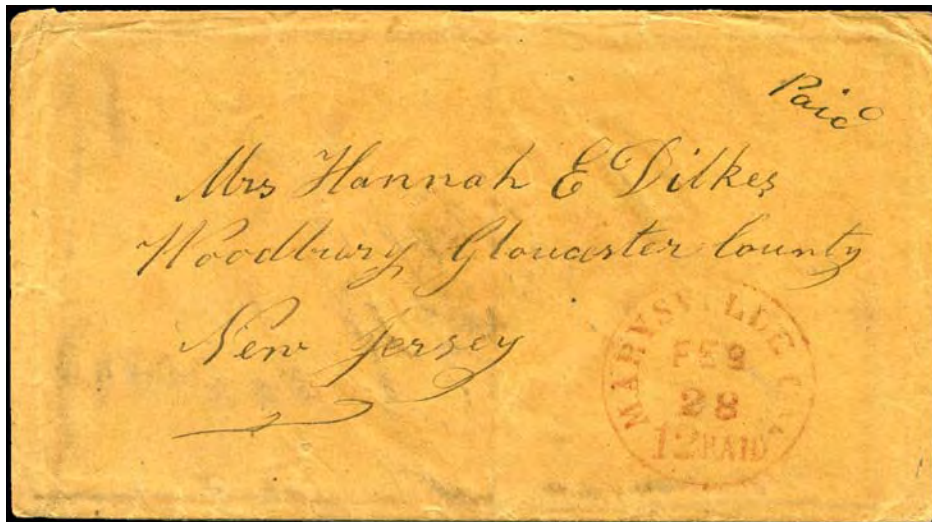 Paid
Mrs Hannah E Dilkes
Woodbury Gloucaster County
New Jersey
MARYSVILLE CAL
FEB
28
12 PAID